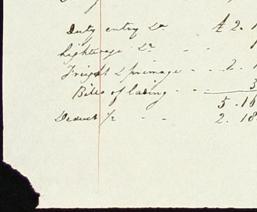 Duty entry &c £2.1
Lighterage &c - -
Freight & primage - - 2.1
Bills of lading - - 3
5.18
Deduct - - 2.18